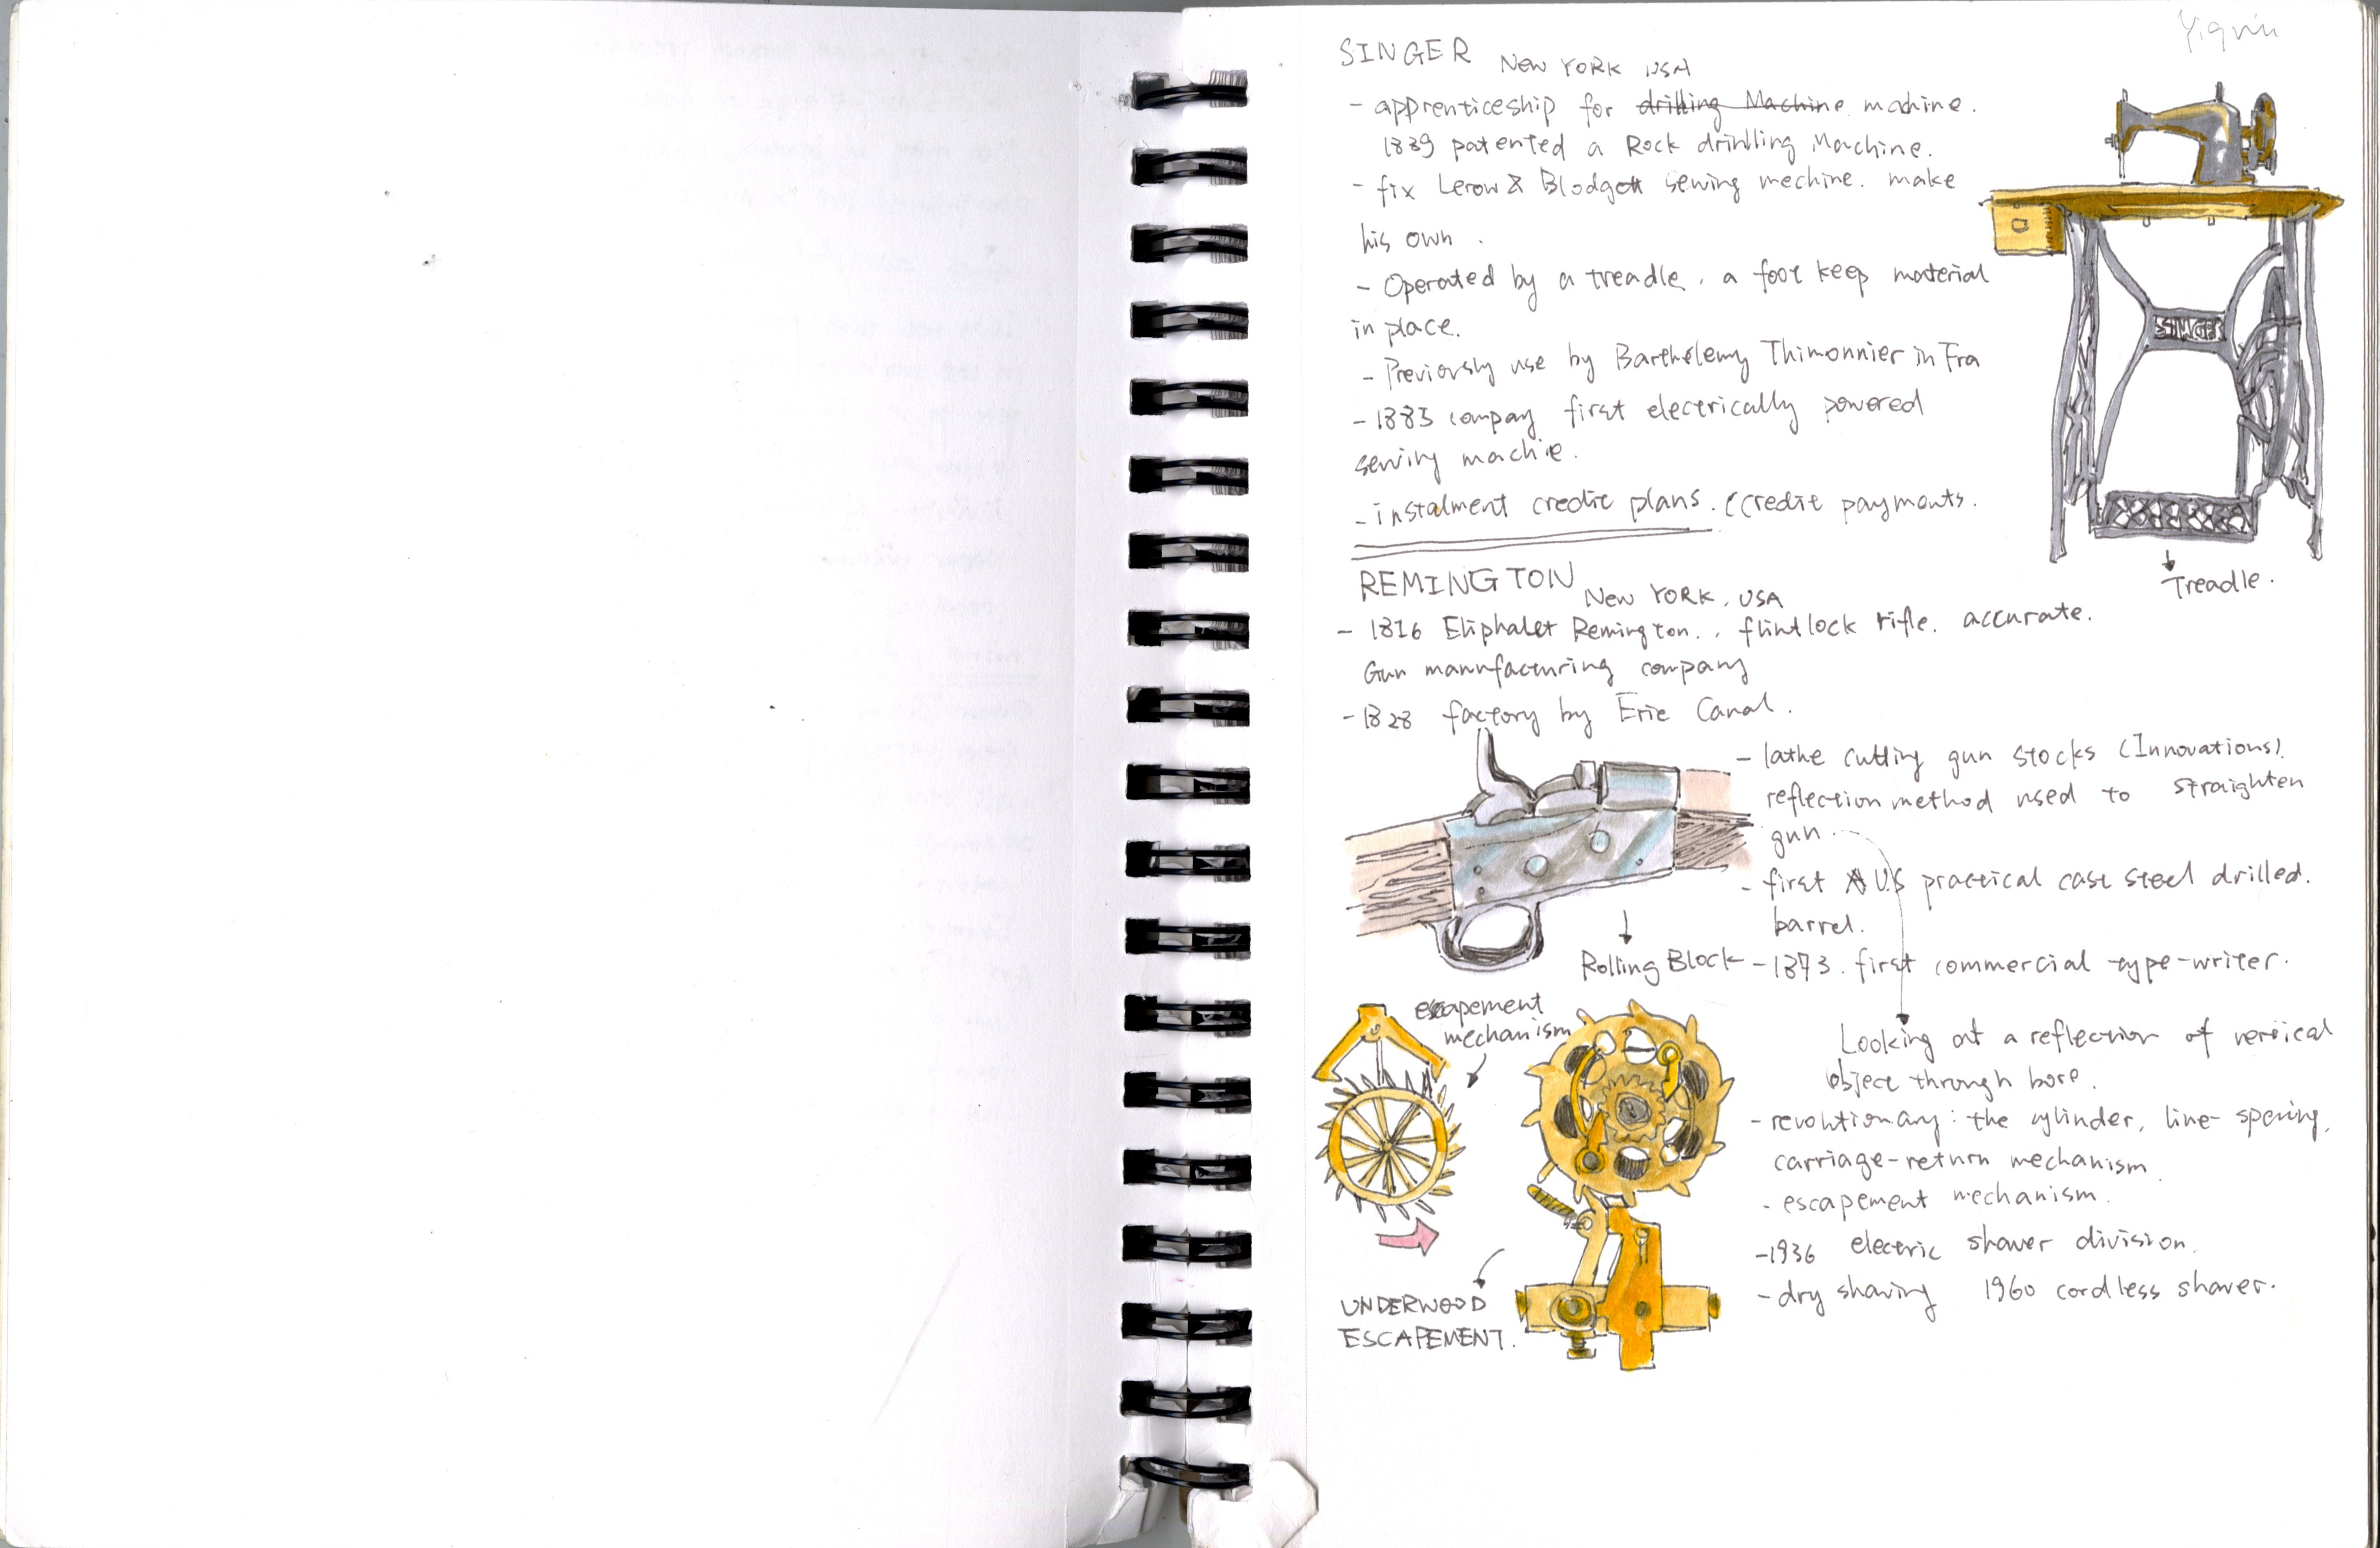 Yiqin
SINGER New YORK USA
- apprenticeship for drilling Machine machine.
1839 patented a Rock drinlling Machine.
- fix Lerow & Blodgett sewing mechine. make
his own.
- Operated by a treadle. a foot keep material
in place.
- Previously use by Barthélemy Thimonnier in Fra
- 1883 compay first electrically powered
sewing machie.
- instalment credit plans. (credit payments.
SINGER
Treadle.
REMINGTON New YORK, USA
- 1816 Eliphalet Remington., flintlock rifle. accurate.
Gun manufacturing company
- 1828 factory by Erie Canal.
- lathe cutting gun stocks (Innovations).
reflection method used to straighten
gun.
- first US practical cast steel drilled.
barrel.
Rolling Block
- 1873. first commercial type-writer.
escapement
mechanism
Looking at a reflection of vertical
object through bore.
- revolutionary: the cylinder, line-spacing,
carriage-return mechanism
- escapement mechanism.
- 1936 electric shaver division.
- dry shaving 1960 cordless shaver.
UNDERWOOD
ESCAPEMENT.